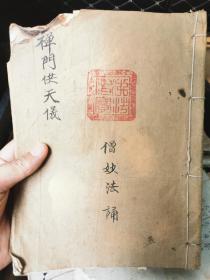 禅門供天儀
僧妙法誦